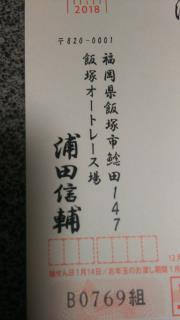 2018
〒820-0001
福岡県飯塚市鯰田147
飯塚オートレース場
浦田信輔
B0769組